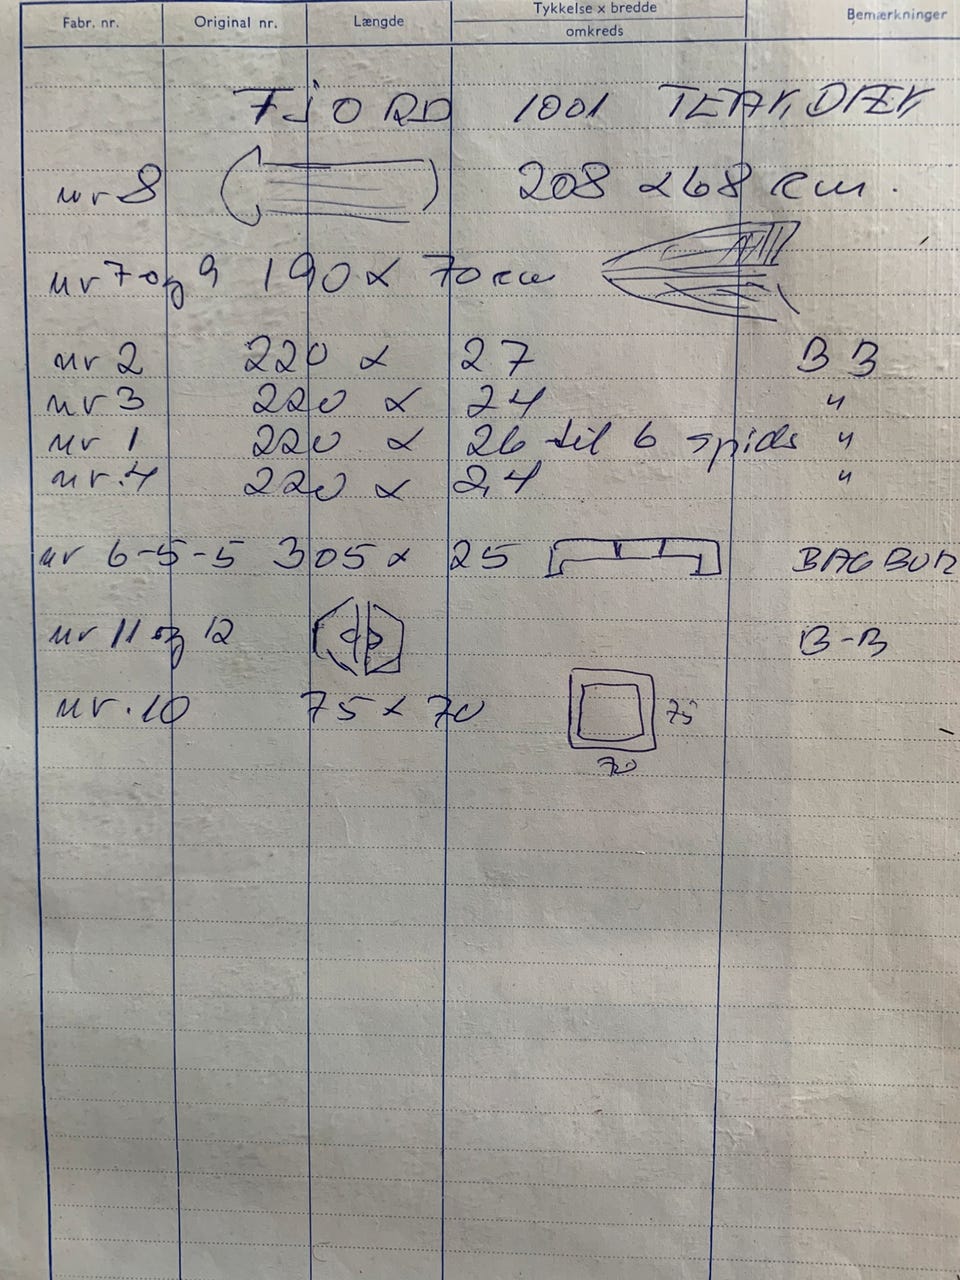 Fabr. nr. Original nr. Længde Tykkelse x bredde Bemærkninger
omkreds
FJORD 1001 TEAK DÆK
nr 8 208 x 68 cm.
nr 7 og 9 190 x 70 cm
nr 2 220 x 27 B B
nr 3 220 x 24 "
nr 1 220 x 26 til 6 spids "
nr. 4 220 x 24 "
nr 6-5-5 305 x 25 BAGBOR
nr 11 og 12 B-B
nr. 10 75 x 70 75
70